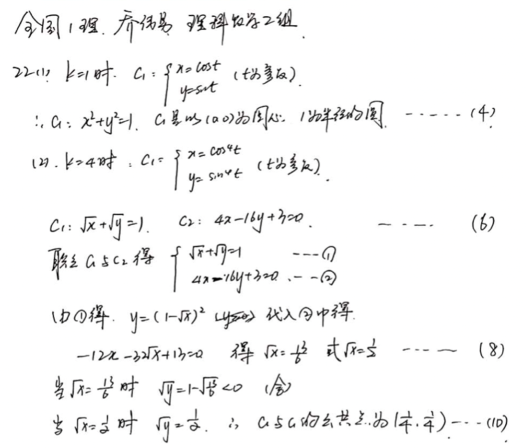 全国1理. 乔伟易 理科数学2组.
22.(1). k=1时. C₁: { x=cost y=sint (t为参数).
∴ C₁: x²+y²=1. C₁是以(0,0)为圆心. 1为半径的圆. ······ (4)
(2). k=4时. C₁: { x=cos⁴t y=sin⁴t (t为参数).
C₁: √x+√y=1. C₂: 4x-16y+3=0. — — · — (6)
联立C₁与C₂得 { √x+√y=1 ---① 4x-16y+3=0. --②
由①得. y=(1-√x)² 代入②中得.
-12x-32√x+13=0 得 √x=13/6 或√x=1/2 ---- (8)
当√x=13/6时 √y=1-√13/6<0 (舍)
当√x=1/2时 √y=1/2. ∴ C₁与C₂的公共点为(1/4, 1/4) --- (10)